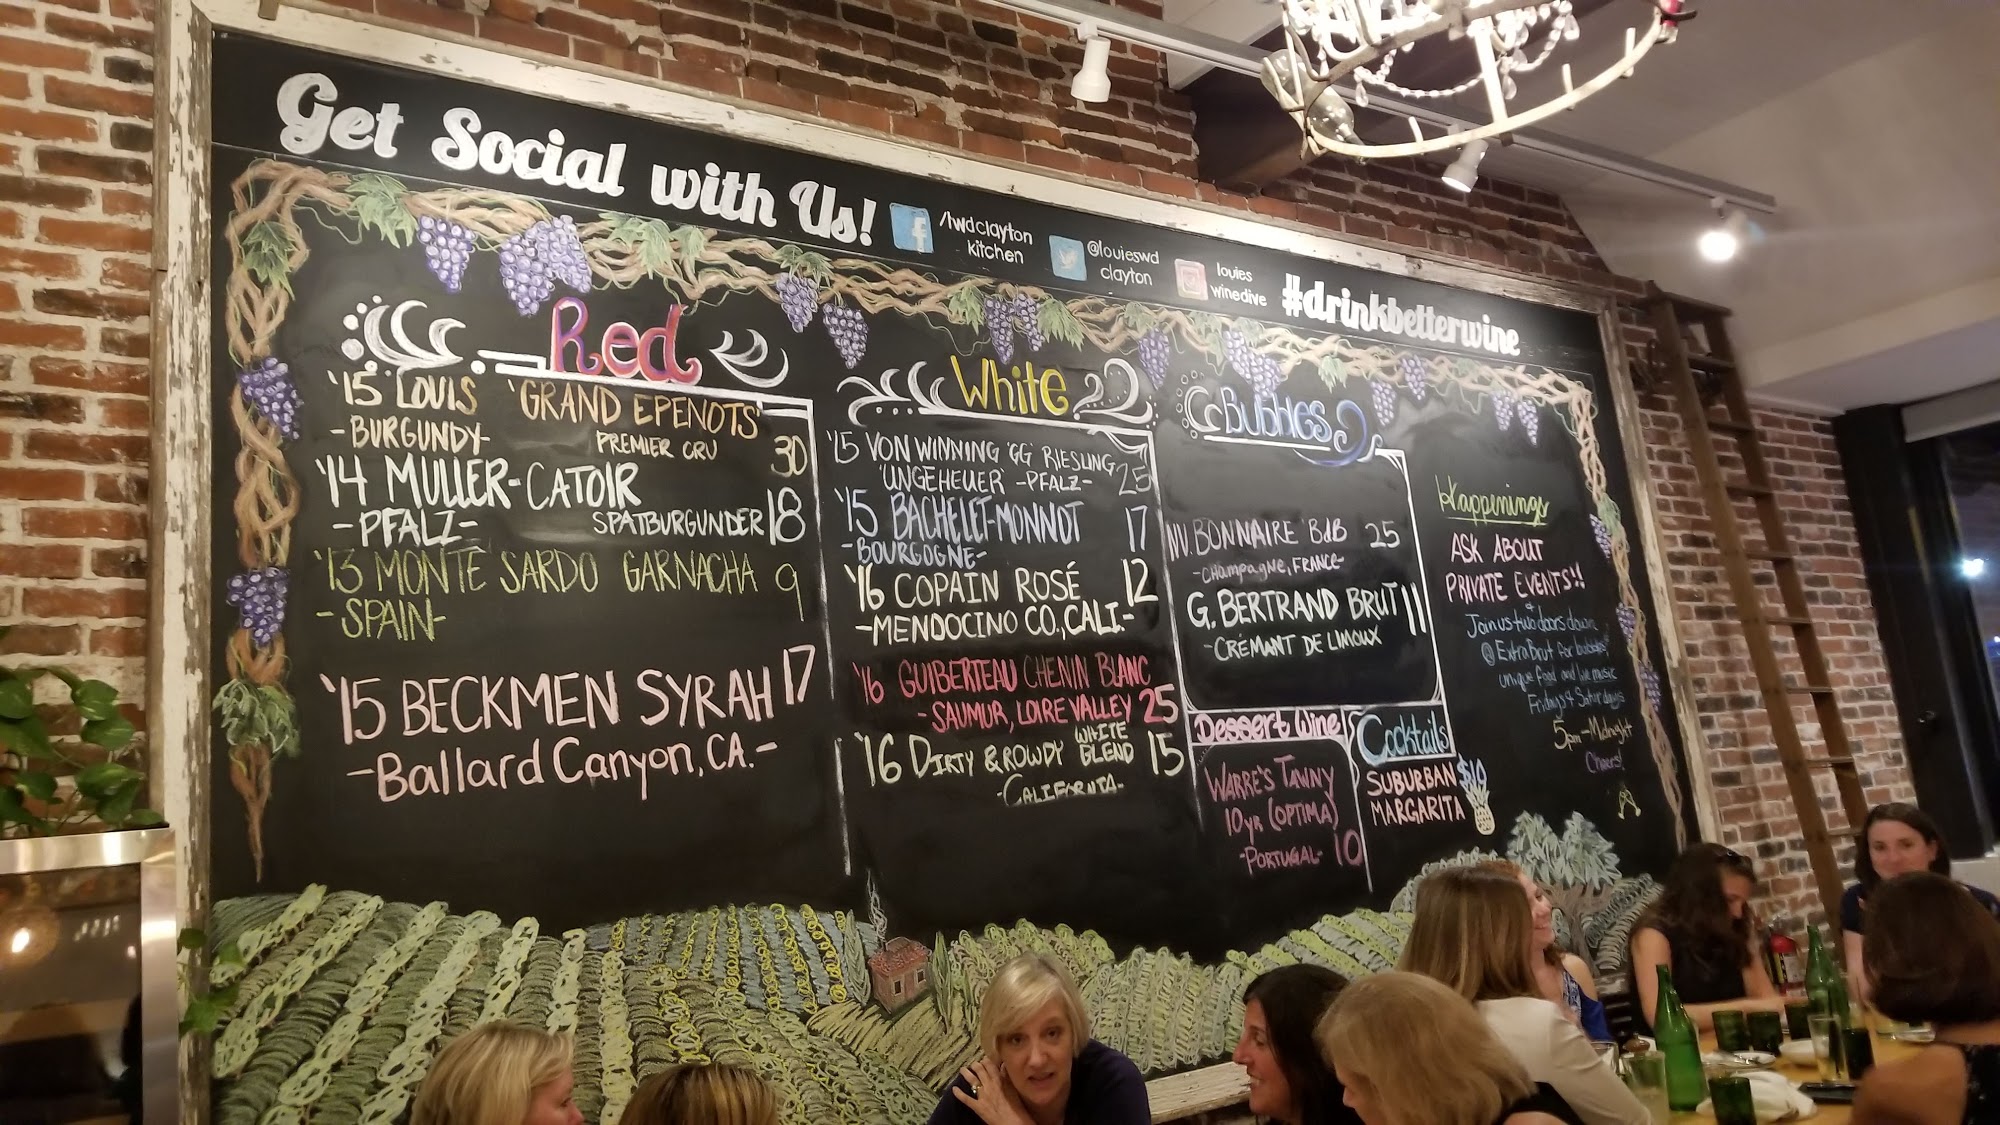 Get Social with Us!
/lwdclayton
kitchen
@louieswd
clayton
louies
winedive
#drinkbetterwine
Red
'15 LOUIS 'GRAND EPENOTS'
-BURGUNDY- PREMIER CRU 30
'14 MULLER-CATOIR
-PFALZ- SPATBURGUNDER 18
'13 MONTE SARDO GARNACHA 9
-SPAIN-
'15 BECKMEN SYRAH 17
-Ballard Canyon, CA.-
White
'15 VON WINNING 'GG' RIESLING
'UNGEHEUER' -PFALZ- 25
'15 BACHELET-MONNOT 17
-BOURGOGNE-
'16 COPAIN ROSÉ 12
-MENDOCINO CO., CALI.-
'16 GUIBERTEAU CHENIN BLANC
-SAUMUR, LOIRE VALLEY 25
'16 DIRTY & ROWDY WHITE BLEND 15
-CALIFORNIA-
Bubbles
NV. BONNAIRE BdB 25
-CHAMPAGNE, FRANCE-
G. BERTRAND BRUT 11
-CRÉMANT DE LIMOUX
Dessert Wine
WARRE'S TAWNY
10 YR (OPTIMA)
-PORTUGAL- 10
Cocktails
SUBURBAN $10
MARGARITA
Happenings
ASK ABOUT
PRIVATE EVENTS!!
Join us two doors down
@ Extra Brut for bubbles,
unique food and live music
Fridays & Saturdays
5pm-Midnight
Cheers!